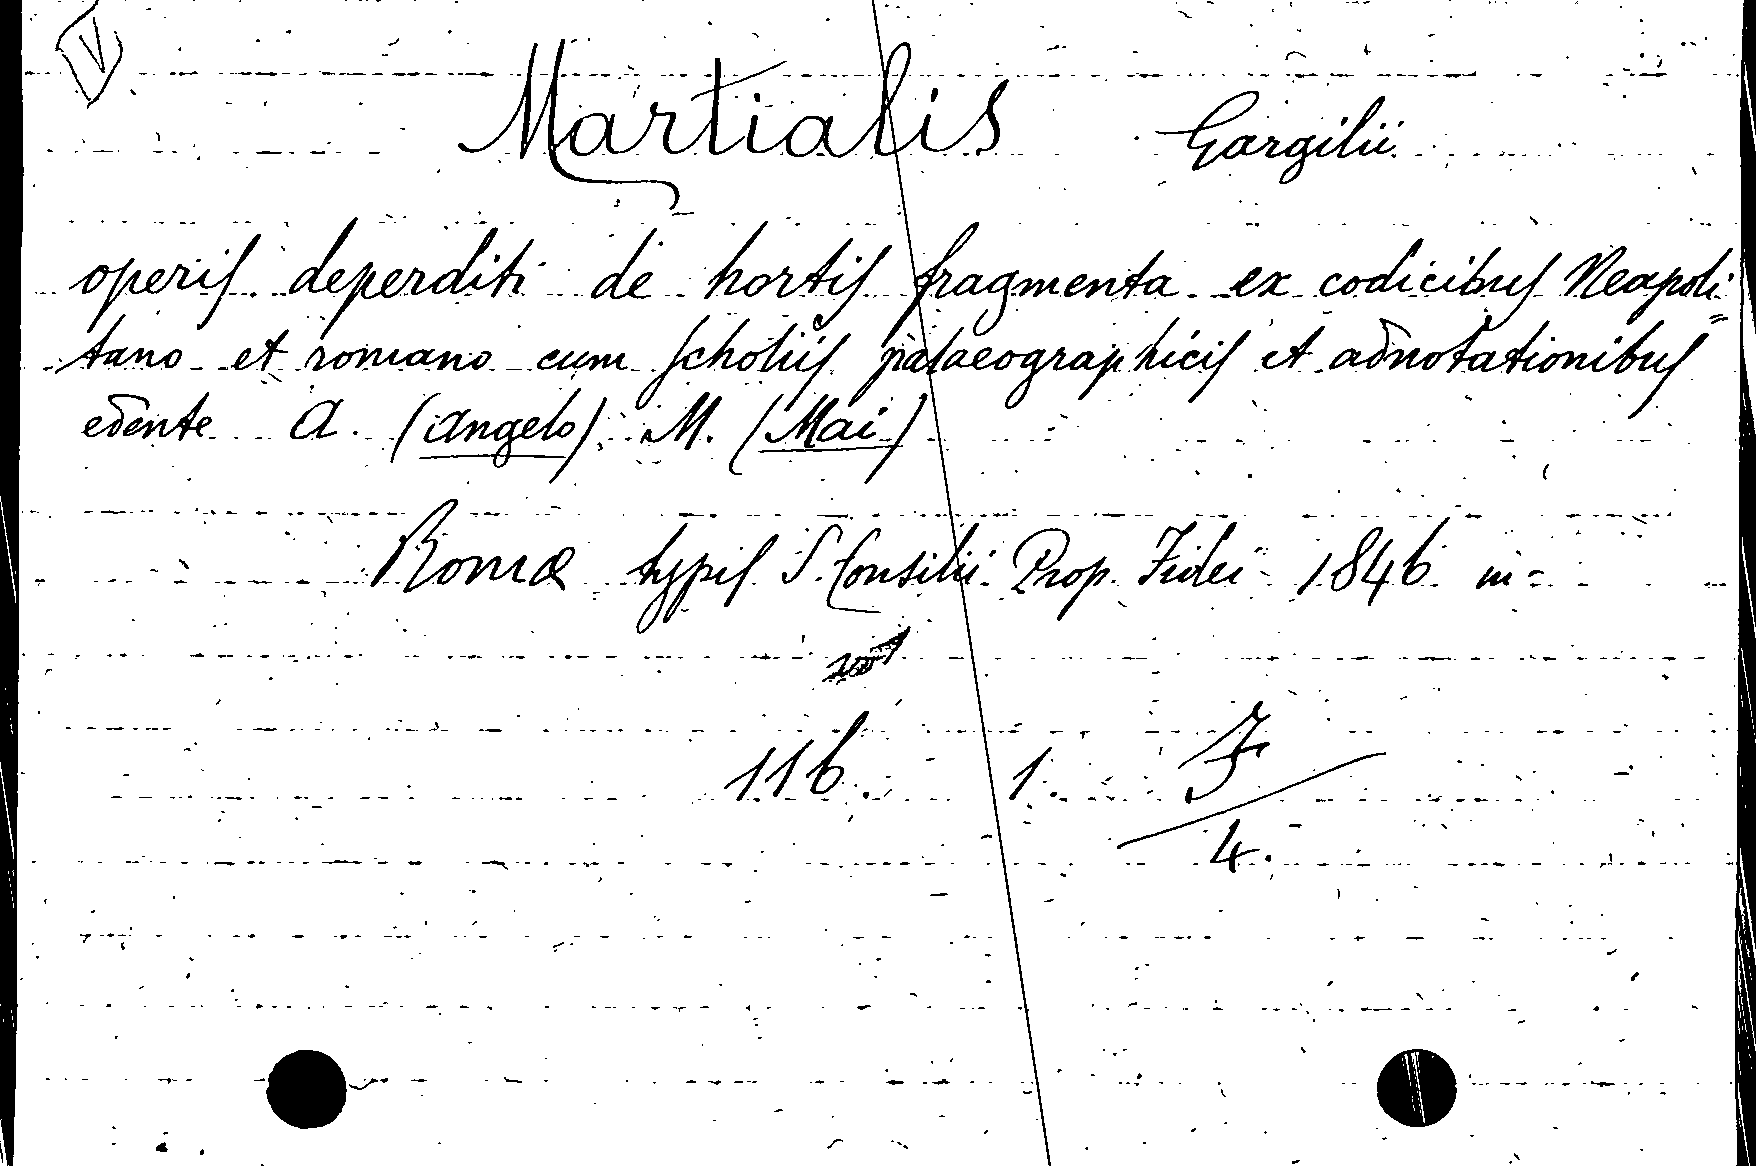 V
Martialis Gargilii
operis deperditi de hortis fragmenta ex codicibus Neapoli=
tano et romano cum scholiis palaeographicis et adnotationibus
edente A. (Angelo) M. (Mai)
Romæ typis S. Consilii Prop. Fidei 1846 in=
116. 1. F
4.